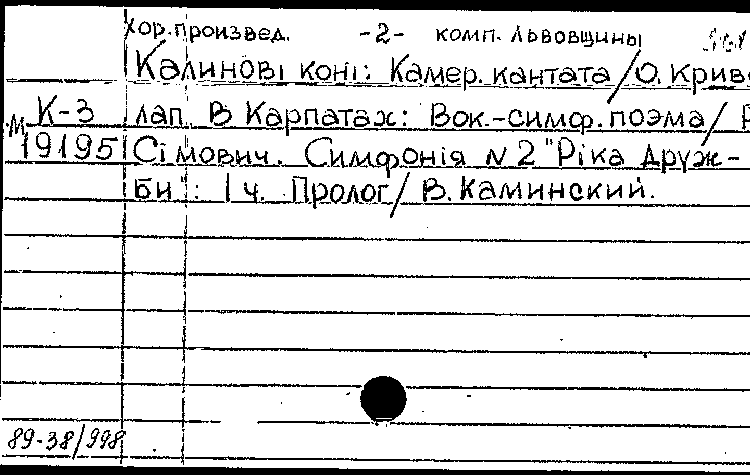 Хор. произвед. -2- комп. Львовщины
Калинові коні: Камер. кантата / О. Криво
М К-3 лап. В Карпатах: Вок.-симф. поэма /
19195 Сімович. Симфонія N 2 "Ріка друж-
би": 1 ч. Пролог / В. Каминский.
89-38/998